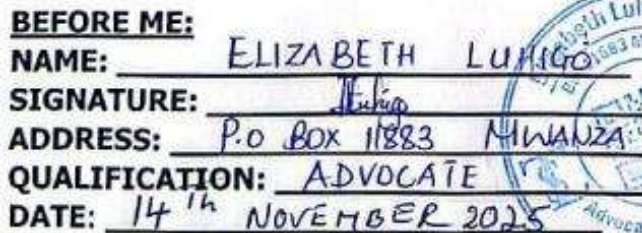 BEFORE ME:
NAME: ELIZABETH LUHIGO
SIGNATURE: Luhigo
ADDRESS: P.O BOX 11883 MWANZA
QUALIFICATION: ADVOCATE
DATE: 14th NOVEMBER 2025
Advoc